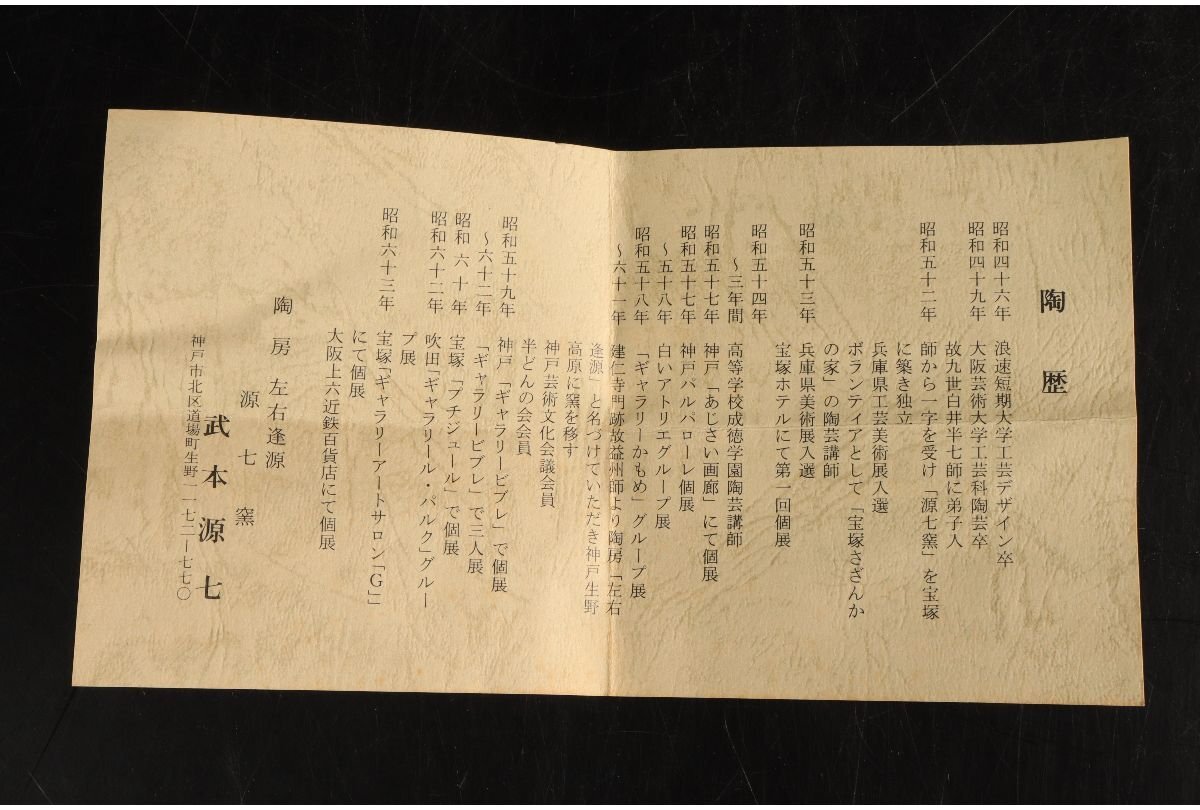 陶歴
昭和四十六年 浪速短期大学工芸デザイン卒
昭和四十九年 大阪芸術大学工芸科陶芸卒
故九世白井半七師に弟子入
昭和五十二年 師から一字を受け「源七窯」を宝塚
に築き独立
兵庫県工芸美術展入選
ボランティアとして「宝塚さざんか
の家」の陶芸講師
昭和五十三年 兵庫県美術展入選
宝塚ホテルにて第一回個展
昭和五十四年
〜三年間 高等学校成徳学園陶芸講師
昭和五十七年 神戸「あじさい画廊」にて個展
昭和五十七年 神戸パルパローレ個展
〜五十八年 白いアトリエグループ展
昭和五十八年 「ギャラリーかもめ」グループ展
〜六十一年 建仁寺門跡故益州師より陶房「左右
逢源」と名づけていただき神戸生野
高原に窯を移す
神戸芸術文化会議会員
半どんの会会員
昭和五十九年 神戸「ギャラリービブレ」で個展
〜六十二年 「ギャラリービブレ」で三人展
昭和六十年 宝塚「プチジュール」で個展
昭和六十二年 吹田「ギャラリール・パルク」グルー
プ展
昭和六十三年 宝塚「ギャラリーアートサロン「G」」
にて個展
大阪上六近鉄百貨店にて個展
陶房 左右逢源
源七窯
武本源七
神戸市北区道場町生野一一七二ー七七〇